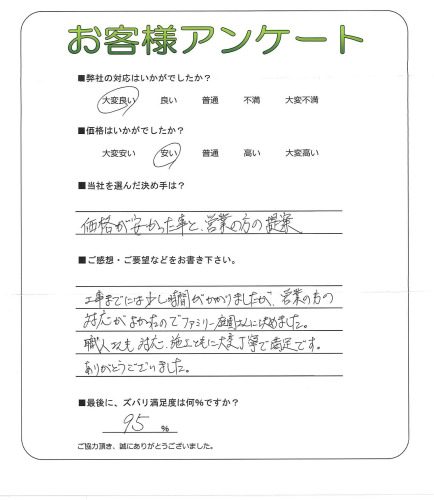 お客様アンケート
■弊社の対応はいかがでしたか?
大変良い 良い 普通 不満 大変不満
■価格はいかがでしたか?
大変安い 安い 普通 高い 大変高い
■当社を選んだ決め手は?
価格が安かった事と、営業の方の提案
■ご感想・ご要望などをお書き下さい。
工事までには少し時間がかかりましたが、営業の方の
対応がよかったのでファミリー庭園さんに決めました。
職人さんも対応、施工ともに大変丁寧で満足です。
ありがとうございました。
■最後に、ズバリ満足度は何%ですか?
95 %
ご協力頂き、誠にありがとうございました。